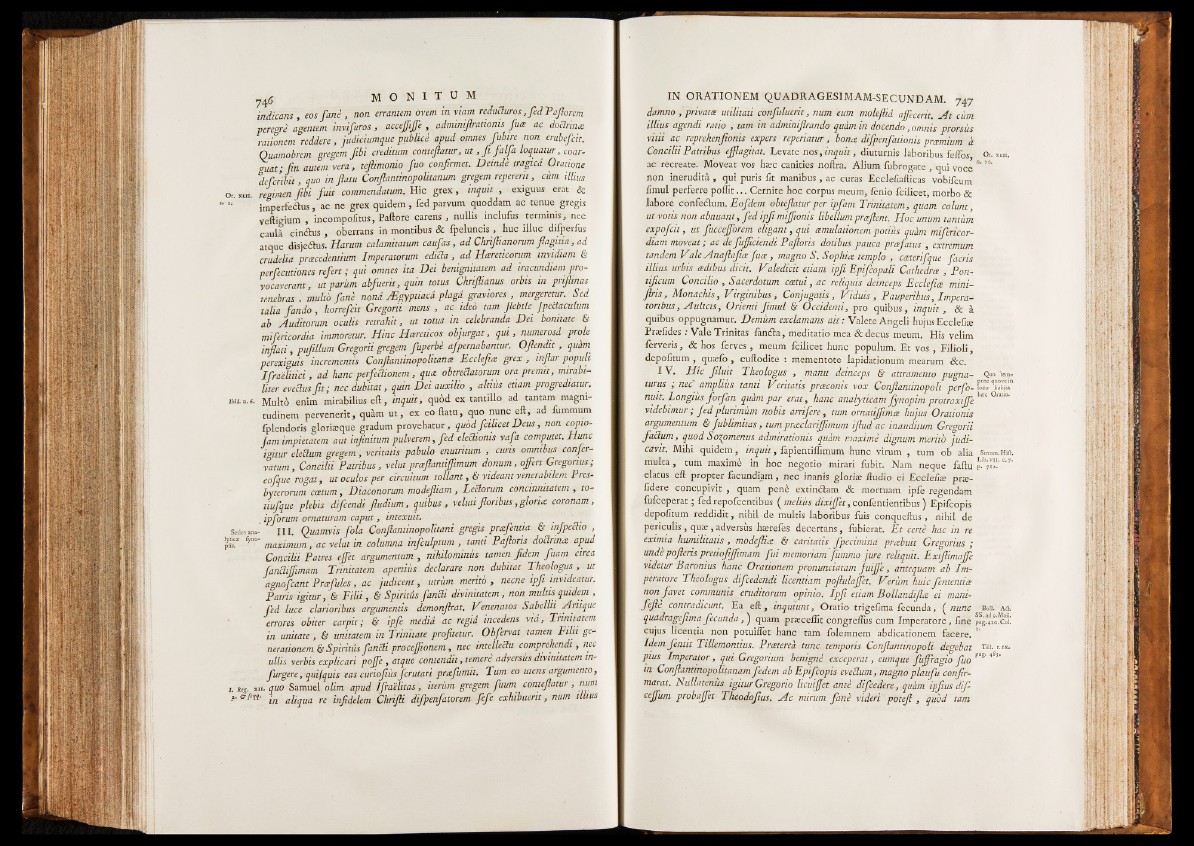 746 MONITUM
indicans, eos sanè, non errantem ovem in viam reducturos, sed Pastorem
peregrè agentem invisuros, accessisse, administrationis suæ ac doctrinæ
rationem reddere, judiciumque publicè apud omnes subire non erubescit.
Quamobrem gregem sibi creditum contestatur, ut, si falsa loquatur, coar-
guat; sin autem vera, testimonio suo confirmet. Deindè tragicâ Oratione
describit, quo in statu Constantinopolitanum gregem repererit, cùm illius
Or. XLII. regimen sibi fuit commendatum. Hic grex, inquit, exiguus erat &
n. 2. imperfectus, ac ne grex quidem, sed parvum quoddam ac tenue gregis
vestigium, incompositus, Pastore carens, nullis inclusus terminis, nec
caulâ cinctus, oberrans in montibus & speluncis, huc illuc dispersus
atque disjectus. Harum calamitatum causas, ad Christianorum flagitia, ad
crudelia præcedentium Imperatorum edicta, ad Hæreticorum invidiam &
persecutiones refert; qui omnes ita Dei benignitatem ad iracundiam pro-
vocaverant, ut parùm abfuerit, quin totus Christianus orbis in pristinas
tenebras, multò sanè nonâ Ægyptiacâ plagâ graviores, mergeretur. Sed
talia fando, horrescit Gregorii mens, ac ideò tam flebile spectaculum
ab Auditorum oculis retrahit, ut totus in celebranda Dei bonitate &
misericordia immoretur. Hinc Hæreticos objurgat, qui, numerosâ prole
inflati, pusillum Gregorii gregem superbè aspernabantur. Ostendit, quàm
perexiguis incrementis Constantinopolitanæ Ecclesiæ grex, instar populi
Israëlitici, ad hanc perfectionem, quæ obtrectatorum ora premit, mirabi-
liter evectus sit; nec dubitat, quin Dei auxilio, altiùs etiam progrediatur.
Ibid. n. 6. Multò enim mirabilius est, inquit, quòd ex tantillo ad tantam magni-
tudinem pervenerit, quàm ut, ex eo statu, quo nunc est, ad summum
splendoris gloriæque gradum provehatur, quòd scilicet Deus, non copio-
sam impietatem aut infinitum pulverem, sed electionis vasa computet. Hunc
igitur electum gregem, veritatis pabulo enutritum, curis omnibus conser-
vatum, Concilii Patribus, velut præstantissimum donum, offert Gregorius;
eosque rogat, ut oculos per circuitum tollant, & videant venerabilem Pres-
byterorum cœtum, Diaconorum modestiam, Lectorum concinnitatem, to-
tiusque plebis discendi studium, quibus, velut floribus, gloriæ coronam,
ipsorum ornaturam caput, intexuit.
Series ana-
lyticæ syno-
psis. III. Quamvis sola Constantinopolitani gregis præsentia & inspectio,
maximum, ac velut in columna insculptum, tanti Pastoris doctrinæ apud
Concilii Patres esset argumentum, nihilominùs tamen fidem suam circa
sanctissimam Trinitatem apertiùs declarare non dubitat Theologus, ut
agnoscant Præsules, ac judicent, utrùm meritò, necne ipsi invideatur.
Patris igitur, & Filii, & Spiritûs sancti divinitatem, non multis quidem,
sed luce clarioribus argumentis demonstrat. Venenatos Sabellii Ariique
errores obiter carpit; & ipse mediâ ac regiâ incedens viâ, Trinitatem
in unitate, & unitatem in Trinitate profitetur. Observat tamen Filii ge-
nerationem & Spiritûs sancti processionem, nec intellectu comprehendi, nec
ullis verbis explicari posse, atque contendit, temerè adversùs divinitatem in-
surgere, quisquis eas curiosiùs scrutari præsumit. Tum eo utens argumento,
I. Reg. XII. quo Samuel olim apud Israëlitas, iterùm gregem suum contestatur, num
2. & seqq. in aliqua re infidelem Christi dispensatorem sese exhibuerit, num illius
IN ORATIONEM QUADRAGESIMAM-SECUNDAM. 747
damno, privatæ utilitati consuluerit, num eum molestiâ affecerit. At cùm
illius agendi ratio, tam in administrando quàm in docendo, omnis prorsùs
vitii ac reprehensionis expers reperiatur, bonæ dispensationis præmium à
Concilii Patribus efflagitat. Levate nos, inquit, diuturnis laboribus fessos, Or. XLII.
ac recreate. Moveat vos hæc canities nostra. Alium subrogate, qui voce
non ineruditâ, qui puris sit manibus, ac curas Ecclesiasticas vobiscum
simul perferre possit... Cernite hoc corpus meum, senio scilicet, morbo &
labore confectum. Eosdem obtestatur per ipsam Trinitatem, quam colunt,
ut votis non abnuant, sed ipsi missionis libellum præstent. Hoc unum tantùm
exposcit, ut successorem eligant, qui æmulationem potiùs quàm misericor-
diam moveat; ac de sufficiendi Pastoris dotibus pauca præfatus, extremum
tandem Vale Anastasiæ suæ, magno S. Sophiæ templo, cæterisque sacris
illius urbis ædibus dicit. Valedicit etiam ipsi Episcopali Cathedræ, Pon-
tificum Concilio, Sacerdotum cœtui, ac reliquis deinceps Ecclesiæ mini-
stris, Monachis, Virginibus, Conjugatis, Viduis, Pauperibus, Impera-
toribus, Aulicis, Orienti simul & Occidenti, pro quibus, inquit, & à
quibus oppugnamur. Demùm exclamans ait: Valete Angeli hujus Ecclesiæ
Præsides: Vale Trinitas sancta, meditatio mea & decus meum. His velim
serveris, & hos serves, meum scilicet hunc populum. Et vos, Filioli,
depositum, quæso, custodite: mementote lapidationum mearum &c.
IV. Hic siluit Theologus, manu deinceps & atramento pugna- Quo tem-
turus; nec ampliùs tanti Veritatis præconis vox Constantinopoli perso- pore quove in
nuit. Longiùs forsan quàm par erat, hanc analyticam synopim protraxisse
videbimur; sed plurimùm nobis arrisere, tum ornatissimæ hujus Orationis
argumentum & sublimitas, tum præclarissimum istud ac inauditum Gregorii
factum, quod Sozomenus admirationis quàm maximè dignum meritò judi-
cavit. Mihi quidem, inquit, sapientissimum hunc virum, tum ob alia Sozom. Hist.
multa, tum maximè in hoc negotio mirari subit. Nam neque fastu Lib. VII. c. 7.
elatus est propter facundiam, nec inanis gloriæ studio ei Ecclesiæ præ-
sidere concupivit, quam penè extinctam & mortuam ipse regendam
susceperat; sed reposcentibus (meliùs dixisset, consentientibus) Episcopis
depositum reddidit, nihil de multis laboribus suis conquestus, nihil de
periculis, quæ, adversùs hæreses decertans, subierat. Et certè hac in re
eximia humilitatis, modestiæ & caritatis specimina præbuit Gregorius;
undè posteris pretiosissimam sui memoriam summo jure reliquit. Existimasse
videtur Baronius hanc Orationem pronunciatam fuisse, antequam ab Im-
peratore Theologus discedendi licentiam postulasset. Verùm huic sententiæ
non favet communis eruditorum opinio. Ipsi etiam Bollandistæ ei mani-
festè contradicunt. Ea est, inquiunt, Oratio trigesima secunda, (nunc Boll. Act.
quadragesima secunda,) quam præcessit congressus cum Imperatore, sine
cujus licentia non potuisset hanc tam solemnem abdicationem facere.
Idem sentit Tillemontius. Prætereà tunc temporis Constantinopoli degebat
pius Imperator, qui Gregorium benignè exceperat, eumque suffragio suo
in Constantinopolitanam sedem ab Episcopis evectum, magno plausu confir-
marat. Nullatenùs igitur Gregorio licuisset antè discedere, quàm ipsius dis-
cessum probasset Theodosius. Ac mirum sanè videri potest, quòd tam